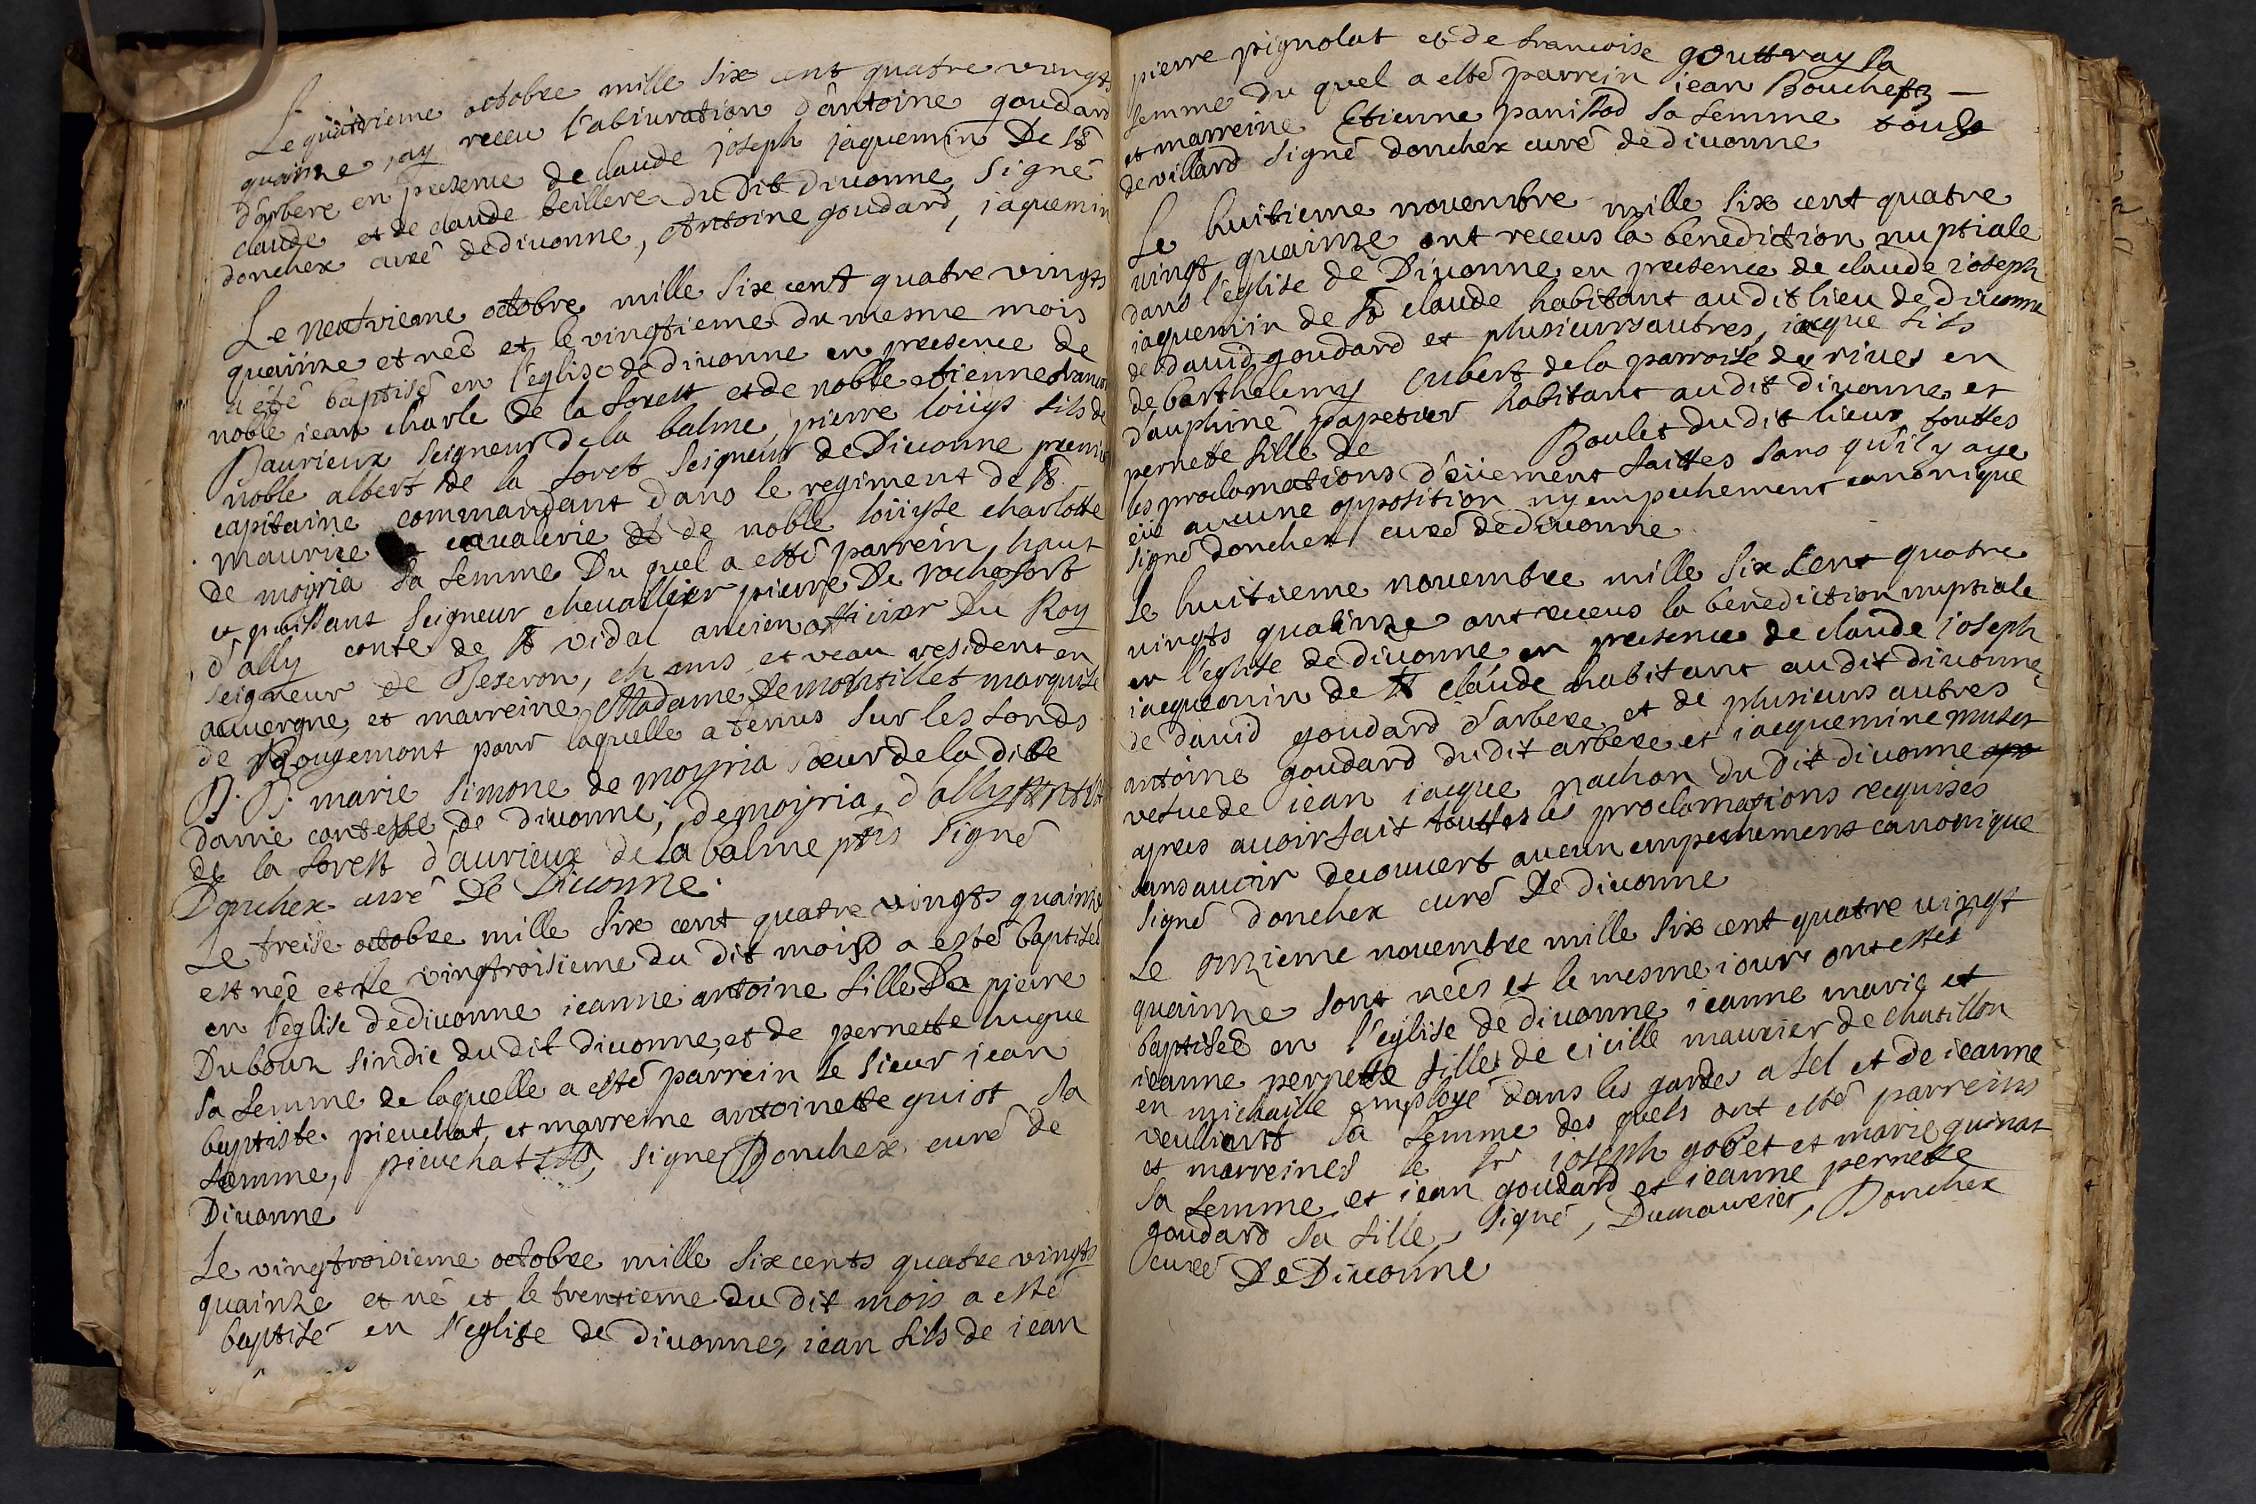 Le quatrieme octobre mille six cent quatre vingts
quainze jay receu l'abiuration d'antoine goudard
d'arbere en presence de claude joseph jaquemin De st
claude et de claude beillere du Dit divonne, signé
donchex curé de divonne, Antoine goudard, jaquemin
Le neufvieme octobre mille six cent quatre vingts
quainze et neé et le vingtieme du mesme mois
a été baptisé en l'eglise de divonne en presence de
noble jean charle de la forest et de noble etienne francois
Daurieux seigneur de la balme, pierre loüys fils de
noble albert de la foret seigneur de Divonne premier
capitaine commandant dans le regiment de st
maurice cavalerie et de noble loüyse charlotte
de moyria sa femme Du quel a esté parrein, haut
et puissant seigneur chevallier pierre De rochefort
d'ally conte de st vidal ancien officier Du Roy
seigneur de Jeseron, et veau resident en
auvergne, et marreine Madame de montillet marquise
de Rougemont pour laquelle a tenus sur les fonds
D. D. marie simone de moyria soeur de la dite
dame contesse de divonne, de moyria, d'ally
de la forest d'aurieux de la balme pnts signé
Donchex curé De Divonne.
Le treise octobre mille six cent quatre vingts quainze
est née et le vingtroisieme du dit mois a esté baptisée
en l'eglise de divonne jeanne antoine fille De pierre
Dubouz sindic du dit divonne, et de pernette hugue
sa femme de laquelle a esté parrein le sieur jean
baptiste pieuchat, et marreine antoinette guiot sa
femme, pieuchat, signe Donchex curé de
Divonne
Le vingtroisieme octobre mille six cents quatre vingts
quainze et né et le trentieme du dit mois a esté
baptisé en l'eglise de divonne, jean fils de jean
pierre pignolat et de francoise gouttray sa
femme du quel a esté parrein jean Bouchet
et marreine Etienne panissod sa femme tous
de villard signé donchex curé de divonne
Le huitieme novembre mille six cent quatre
vingt quainze ont receus la benediction nuptiale
dans l'eglise de Divonne en presence de claude joseph
jaquemin de st claude habitant au dit lieu de divonne
de david goudard et plusieurs autres, jacque fils
de barthelemy Cubert de la parroise de rives en
d'auphiné papetier habitant au dit divonne, et
pernette fille de Boulet du dit lieux, touttes
les proclamations d'eüement faittes sans qu'il y aye
eüe aucune opposition ny empechement canonique
signé donchex curé de divonne
Le huitieme novembre mille six cent quatre
vingts quainze ont receus la benediction nuptiale
en l'eglise de divonne en presence de claude joseph
jacquemin de st claude habitant au dit divonne,
de david goudard d'arbere et de plusieurs autres
antoine goudard du dit arbere et jacquemine muset
vefue de jean jacque nachon du Dit divonne
apres avoir fait touttes les proclamations requises
sans avoir decouvert aucun empechement canonique
signé donchex curé De divonne
Le onzieme novembre mille six cent quatre vingt
quainze sont neés et le mesme jour ont estés
baptiseé en l'eglise de divonne jeanne marie et
jeanne pernette filles de cicille maurier de chatillon
en michaille employé dans les gardes a sel et de jeanne
veulliant sa femme des quels ont esté parreins
et marreines le sr joseph gobet et marie guinat
sa femme et jean goudard et jeanne pernette
goudard sa fille, signé, Dumaurier, Donchex
curé De Divonne